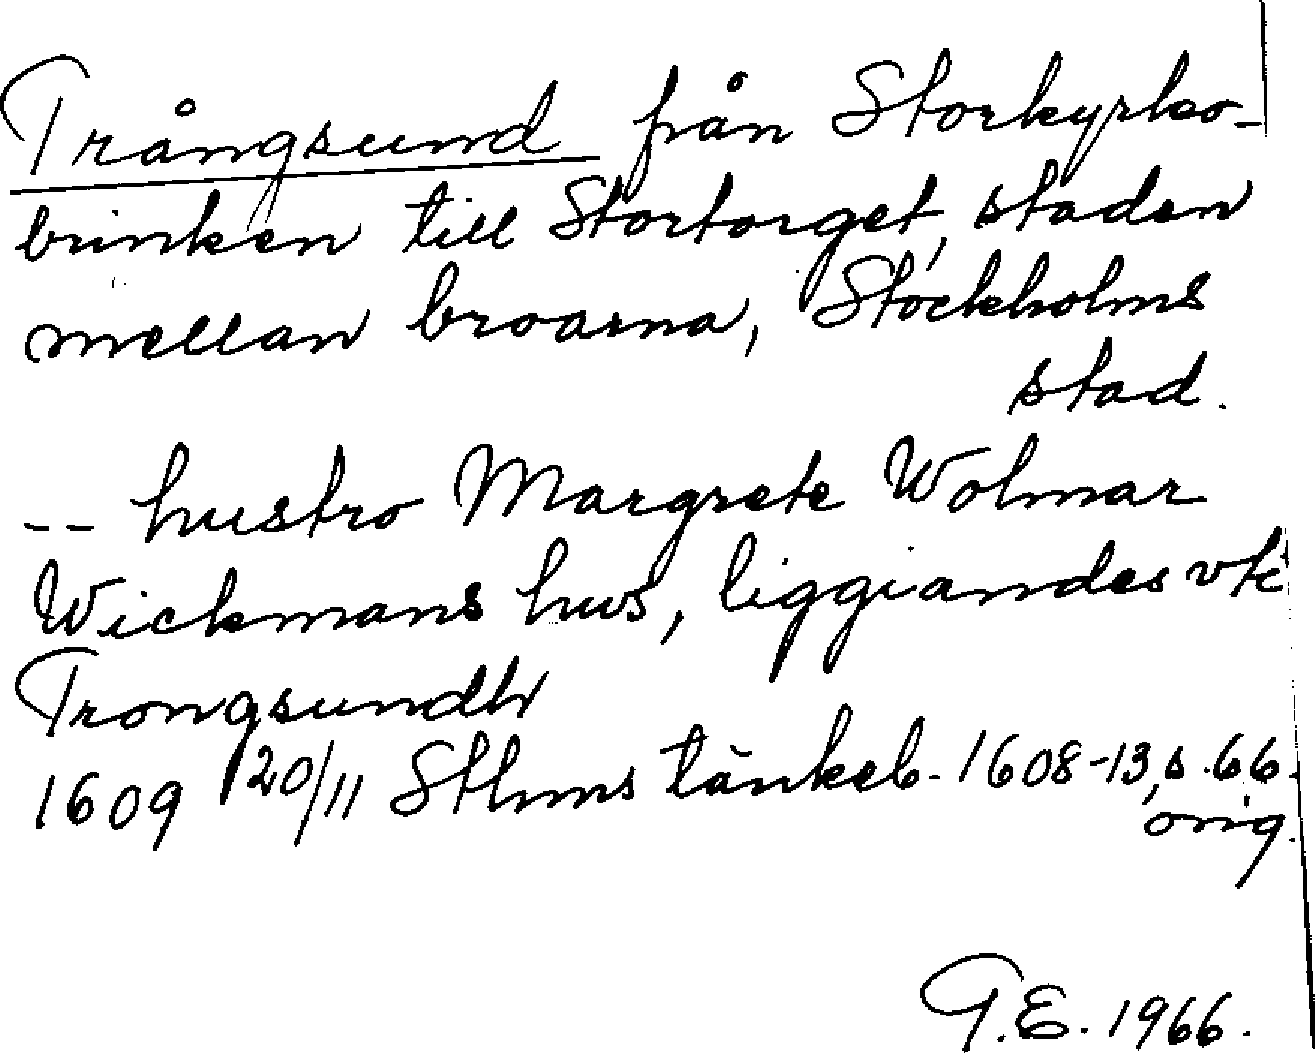 Trångsund från Storkyrko-
brinken till Stortorget, staden
mellan broarna, Stockholms
stad.
-- hustro Margrete Wolmar
Wickmans hws, liggiandes vti
Trongsundh
1609 20/11 Sthms tänkeb. 1608-13, s. 66.
orig.
G.E. 1966.